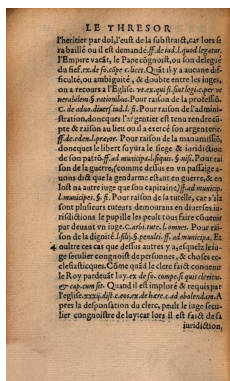 LE THRESOR
l'heritier par dol, l'eust de la substraict, car lors se
ra baillé ou il est demandé. ff. de iud. l. quod legatur.
l'Empire vacāt, le Pape cognoist, ou son delegué
du fief. ex. de fo. cōpe c. licet. Quāt il y a aucune dif-
ficulté, ou ambiguité, & doubte entre les iuges,
on a recours a l'Eglise. ve. ex. qui fi. sunt legi. c. per ve
nerabilem. § rationibus. Pour raison de la professiō.
C. de aduo. diuers. iud. l. fi. Pour raison de l'admini-
stration, doncques l'argentier est tenu rendre cō-
pte & raison au lieu ou il a exercé son argenterie.
ff. de eden. l. prætor. Pour raison de la manumissiō,
doncques le libert suyura le siege & iuridiction
de son patrō. ff. ad municipa. l. siquis. § nisi. Pour rai
son de la guerre, comme dessus en vn passage a-
uons dict que la gendarme estant en guerre, & en
lost na autre iuge que son capitaine) ff. ad municip.
l. municipes. § fi. Pour raison de la tutelle, car s'ilz
sont plusieurs tuteurs demourans en diuerses iu-
risdictions le pupille les peult tous faire cōuenir
par deuant vn iuge. C. arbi. tute. l. omnes. Pour rai-
son de la dignité l. filij. § penulti. ff. ad municipa. Et
4 oultre ces cas que dessus autres y a, esquelz le iu-
ge seculier congnoist de personnes, & choses ec-
clesiastiques. Cōme quād le clerc faict conuenir
le Roy pardeuāt lay. ex de fo. compe. si quis clericus
& cap. cum sit. Quand il est imploré & requis par
l'eglise. xxiij. dist. c. eos. ex de hære c. ad abolendam. A
pres la desponsation du clerc, peult le iuge secu-
lier congnoistre de luy: car lors il est faict de sa
iuridiction,